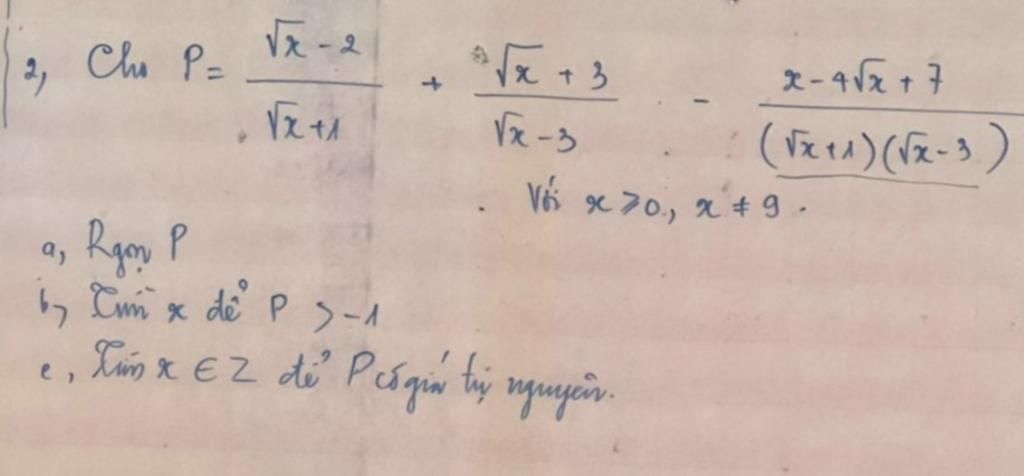 2, Cho P = (√x - 2)/(√x + 1) + (√x + 3)/(√x - 3) - (x - 4√x + 7)/((√x + 1)(√x - 3))
Với x ≥ 0, x ≠ 9.
a, Rgọn P
b, Tìm x để P > -1
c, Tìm x ∈ Z để P có giá trị nguyên.